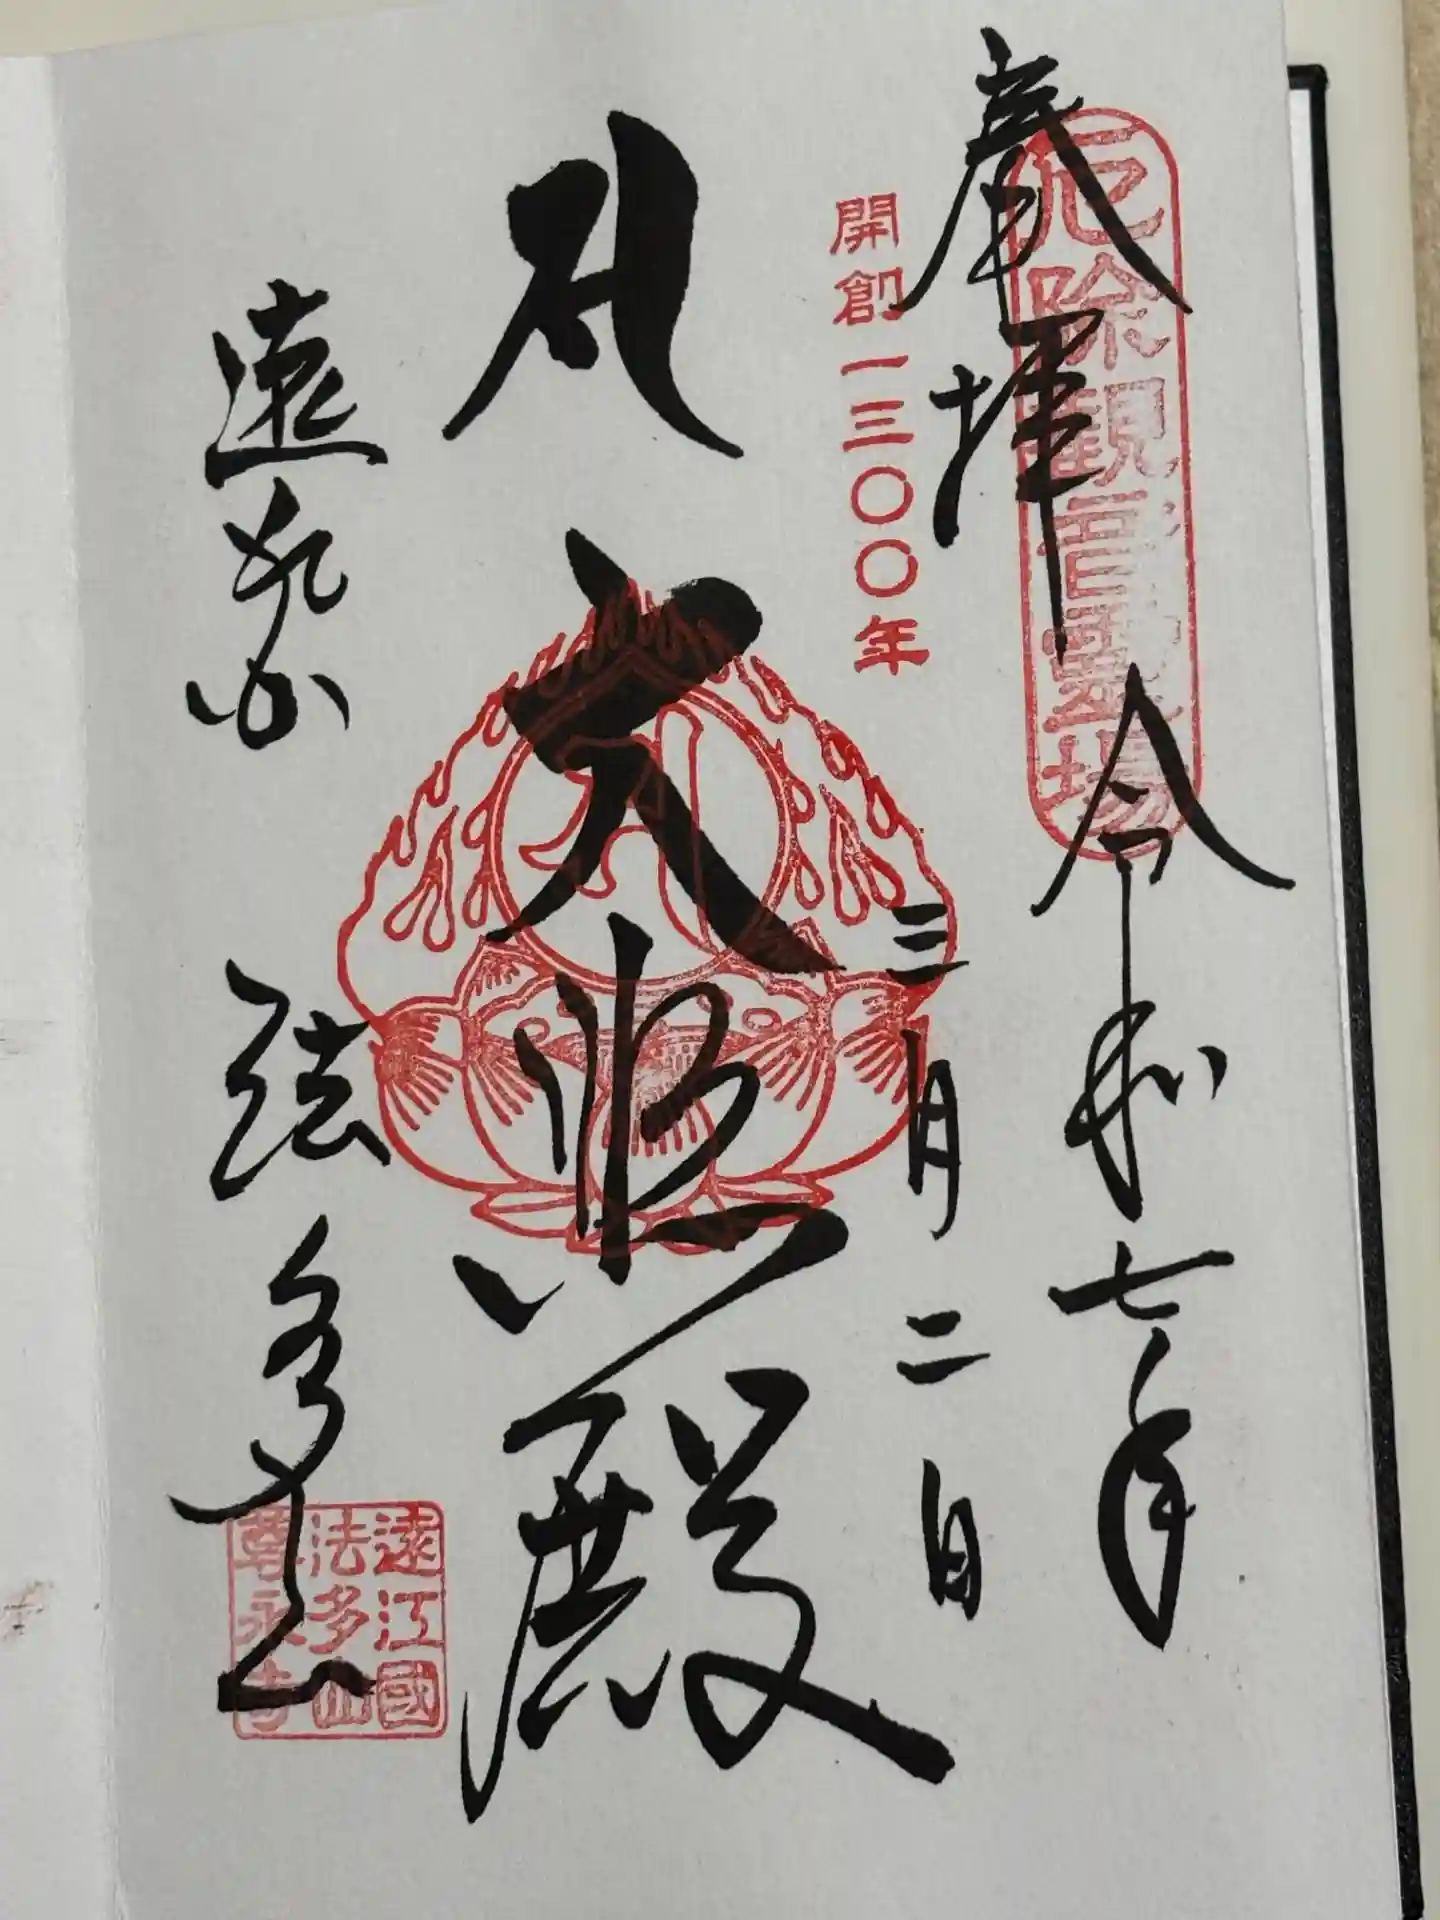 厄除観音霊場
奉拝
令和七年
開創一三〇〇年
三月二日
大悲殿
遠州
法多山
遠江國
法多山
尊永寺